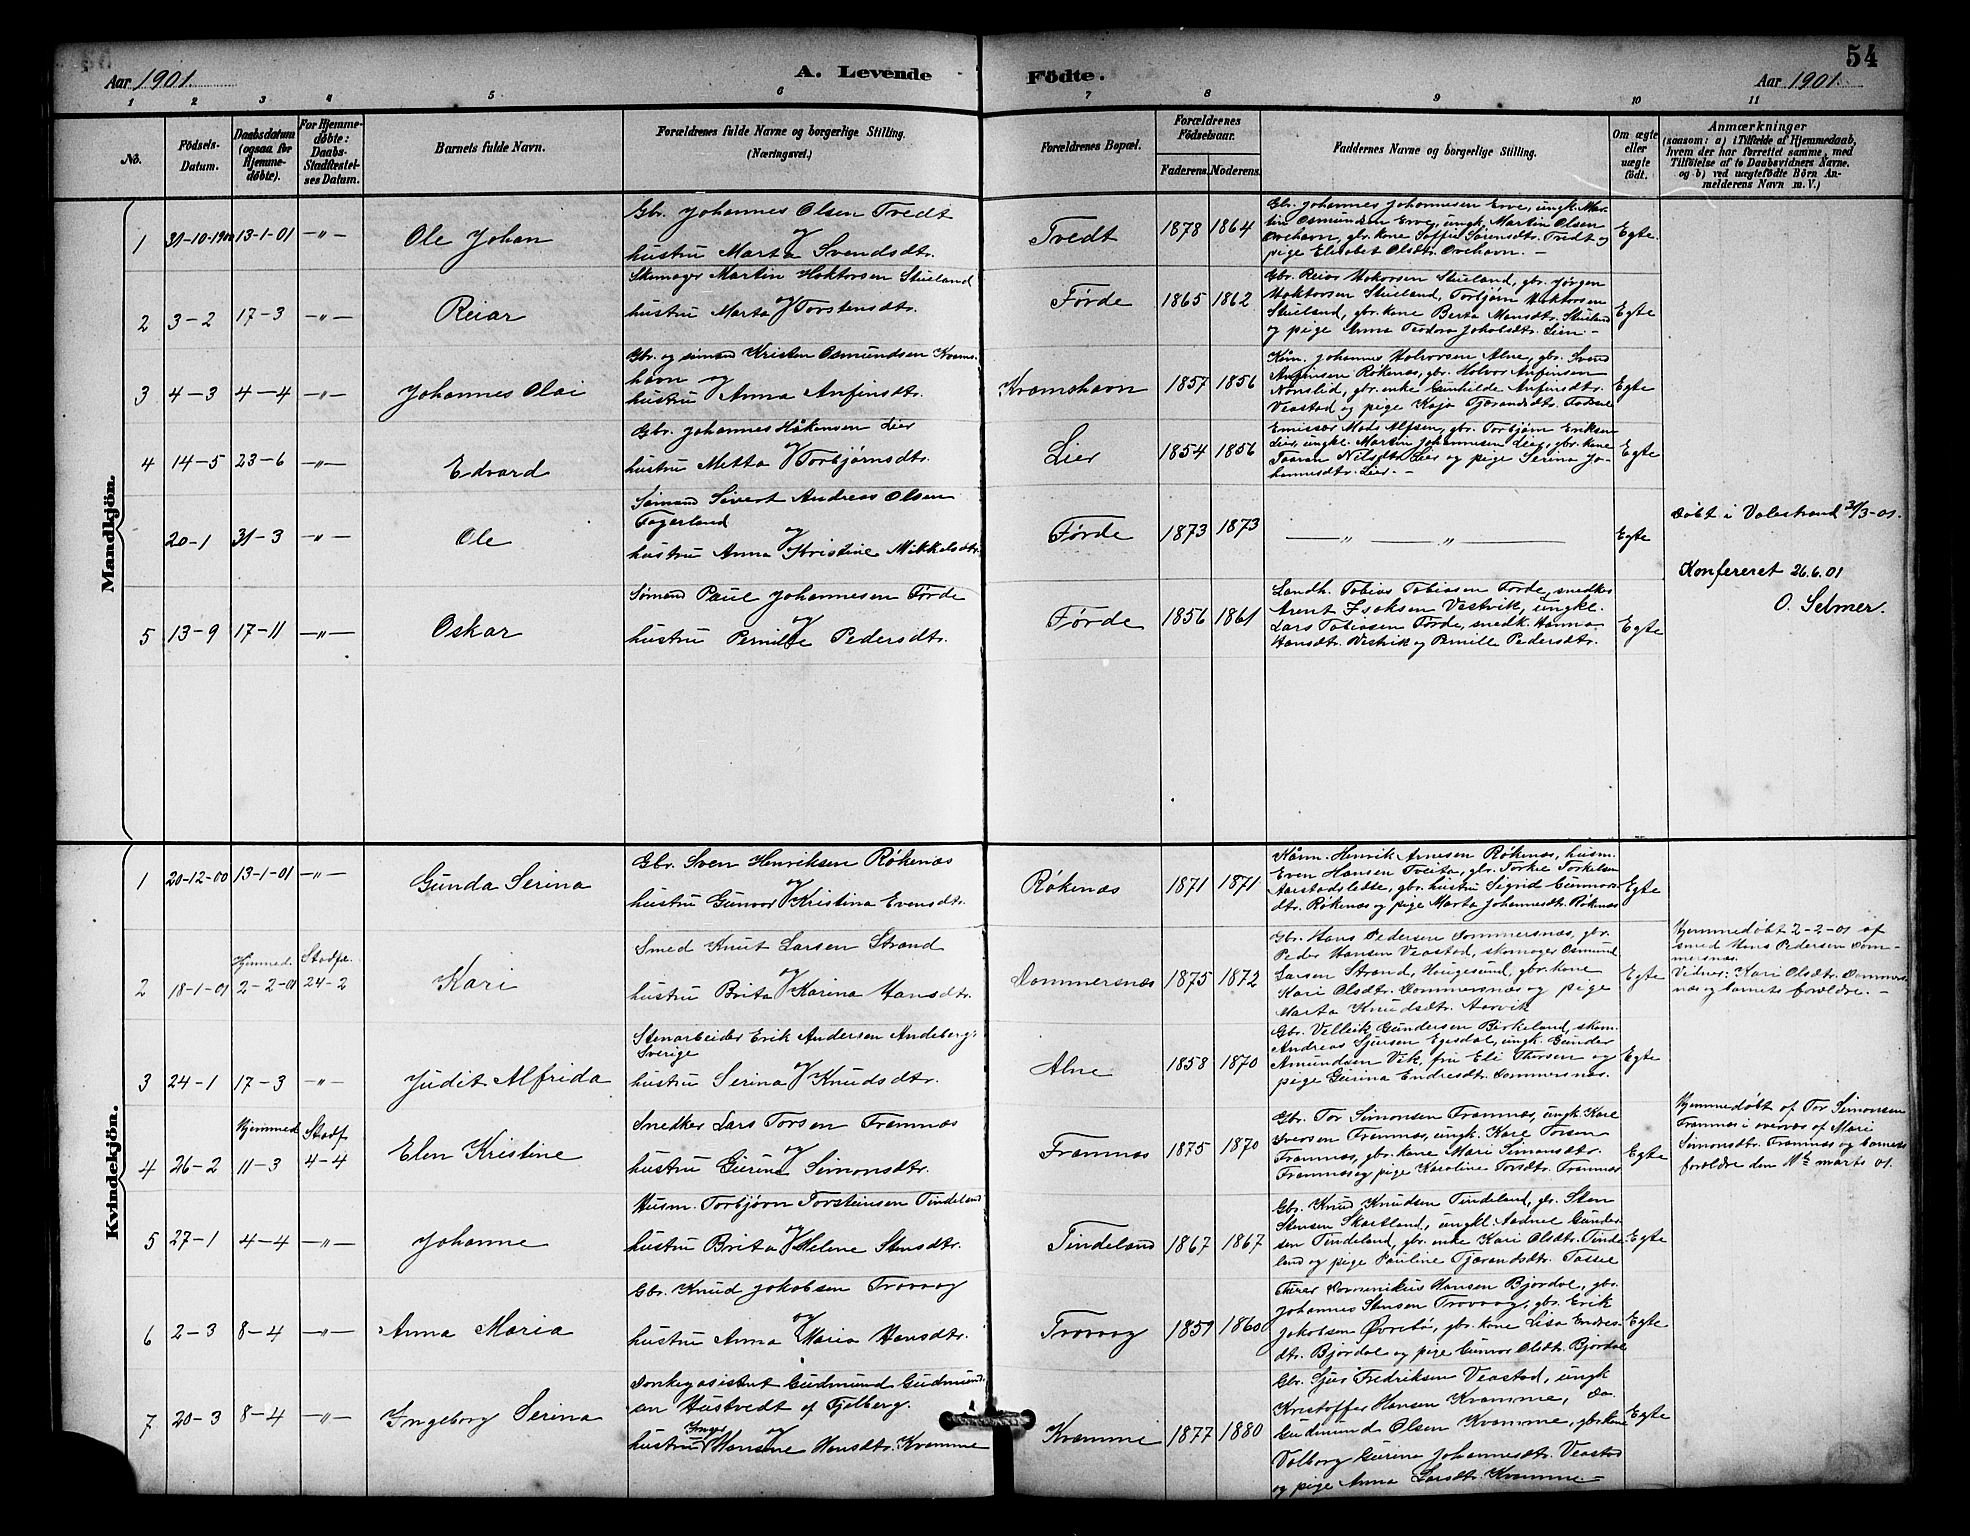 54
Aar 1901.
A. Levende Födte.
Aar 1901.
1 2 3 4 5 6 7 8 9 10 11
No.
Födsels-
Datum.
Daabsdatum
(ogsaa for
Hjemme-
døbte).
For Hjemme-
døbte:
Daabs-
Stadfæstel-
ses Datum.
Barnets fulde Navn.
Forældrenes fulde Navne og borgerlige Stilling.
(Næringsvei.)
Forældrenes Bopæl.
Forældrenes
Födselsaar.
Faderens. Moderens.
Faddernes Navne og borgerlige Stilling.
Om ægte
eller
uægte
født.
Anmærkninger
(saasom: a) i Tilfælde af Hjemmedaab,
hvem der har forrettet samme, med
Tilføielse af to Daabsvidners Navne.
og b) ved uægtefødte Börn An-
melderens Navn m. V.)
Mandkjön.
1 31-10-1900 13-1-01 -"- Ole Johan
Gbr. Johannes Olsen Tredt
og
hustru Marta Svendsdtr.
Tvedt 1878 1864
Gbr. Johannes Johannesen Erve, ungk. Mar-
tin Osmundsen Erve, ungk. Martin Olsen
Ovehavn, gbr. kone Soffie Sørensdtr. Tredt og
pige Elisabet Olsdtr. Ovehavn. -
Egte.
2 3-2 17-3 -"- Reiar
Skomager Martin Hoktorsen Stueland
og
hustru Marta Torstensdtr.
Førde 1865 1862
Gbr. Reiar Hoktorsen Stueland, gbr. Jørgen
Hoktorsen Stueland, Torbjørn Hoktorsen
Stueland, gbr. kone Berta Monsdtr. Stueland
og pige Anna Teodora Jakobsdtr. Lien. -
Egte
3 4-3 4-4 -"- Johannes Olai
Gbr. og sømand Kristen Osmundsen Kroms-
havn og
hustru Anna Anfinsdtr.
Kromshavn 1857 1856
Kårm. Johannes Holvorsen Alne, gbr. Svend
Anfinsen Røkenæs, gbr. Holvor Anfinsen
Nonslid, gbr. enke Gunhilde Anfinsdtr.
Veastad og pige Kaja Tjærandsdtr. Tossee
Egte
4 14-5 23-6 -"- Edvard
Gbr. Johannes Håkensen Lier
og
hustru Metta Torbjørnsdtr.
Lier 1854 1856
Emissær Mads Alfsen, gbr. Torbjørn Eriksen
Lier, ungk. Martin Johannesen Lier, gbr. kone
Taaran Nilsdtr. Lier og pige Serina Jo-
hannesdtr. Lier. -
Egte
20-1 31-3 -"- Ole
Sømand Sivert Andreas Olsen
Fagerland
og
hustru Anna Kristine Mikkelsdtr.
Førde 1873 1873
— " — " —
Egte
Døbt i Valestrand 31/3-01.
Konfereret 26.6.01
O. Selmer.
5 13-9 17-11 -"- Oskar
Sømand Paul Johannesen Førde
og
hustru Pernille Pedersdtr.
Førde 1856 1861
Landh. Tobias Tobiasen Førde, snedker
Arent Isaksen Vestvik, ungk.
Lars Tobiasen Førde, snedk. Hanna
Hansdtr. Vestvik og Pernille Pedersdtr.
Egte
Kvindekjön.
1 20-12-00 13-1-01 -"- Gunda Serina
Gbr. Sven Henriksen Røkenæs
og
hustru Gunvor Kristina Evensdtr.
Røkenæs 1871 1871
Kårm. Henrik Arnesen Røkenæs, husm.
Even Hansen Tveita, gbr. Torkie Torkelsen
Aarstadslette, gbr. hustru Sigrid Gunnors-
dtr. Røkenæs og pige Marta Johannesdtr. Røkenæs
Egte
2 18-1-01
Hjemmed.
2-2-01
Stadfæ.
24-2
Kari
Smed Knut Larsen Strand
og
hustru Brita Karina Hansdtr.
Dommersnæs 1875 1872
Gbr. Hans Pedersen Dommersnæs, gbr.
Peder Hansen Veastad, skomager Osmund
Larsen Strand, Haugesund, gbr. kone
Kari Olsdtr. Dommersnæs og pige
Marta Knudsdtr. Aarvik
Egte
Hjemmedøbt 2-2-01 af
smed Hans Pedersen Dom-
mersnæs.
Vidner: Kari Olsdtr. Dommers-
næs og barnets forældre. -
3 24-1 17-3 -"- Judit Alfrida
Stenarbeider Erik Andersen Andeberg,
Sverige
og
hustru Serina Knudsdtr.
Alne 1858 1870
Gbr. Velleik Gundersen Birkeland, skom.
Andreas Sjursen Egesdal, ungk. Gunder
Amundsen Vik, fru Eli Thorsen og
pige Gurina Endresdtr. Dommersnæs.
Egte
4 26-2
Hjemmed
11-3
Stadf.
4-4
Elen Kristine
Snedker Lars Torsen Framnæs
og
hustru Gurine Simonsdtr.
Framnæs 1875 1870
Gbr. Tor Simonsen Framnæs, ungk. Kare
Iversen Framnæs, ungk. Kare Torsen
Framnæs, gbr. kone Mari Simonsdtr.
Framnæs og pige Karoline Torsdtr. Framnæs
Egte
Hjemmedøbt af Tor Simonsen
Framnæs i overvær af Mari
Simonsdtr. Framnæs og barnets
forældre den 11te marts 01.
5 27-1 4-4 -"- Johanne
Husm. Torbjørn Torsteinsen Tindeland
og
hustru Brita Helene Stensdtr.
Tindeland 1867 1867
Gbr. Knud Knudsen Tindeland, gbr. Sten
Stensen Skartland, ungk. Aadne Gunder-
sen Tindeland, gbr. enke Kari Olsdtr. Tinde-
land og pige Pauline Tjærandsdtr. Tossee
Egte
6 2-3 8-4 -"- Anna Maria
Gbr. Knud Jakobsen Trovaag
og
hustru Anna Maria Hansdtr.
Trovaag 1859 1860
Dominikus Hansen Bjordal, gbr.
Johannes Stensen Trovaag, gbr. Erik
Jakobsen Øvrebø, gbr. kone Lisa Endres-
dtr. Bjordal og pige Gunvor Olsdtr. Bjordal
Egte
7 20-3 8-4 -"- Ingeborg Serina
Donkeyasistent Gudmund Gudmund-
sen Hustvedt af Fjelberg.
Inger og
hustru Hansine Hansdtr. Kramme
Kramme 1877 1880
Gbr. Sjur Fredriksen Veastad, ungk
Kristoffer Hansen Kramme, do
Gudmund Olsen Kramme, gbr. kone
Valborg Gurina Johannesdtr. Veastad
og pige Anna Larsdtr. Kramme. -
Egte